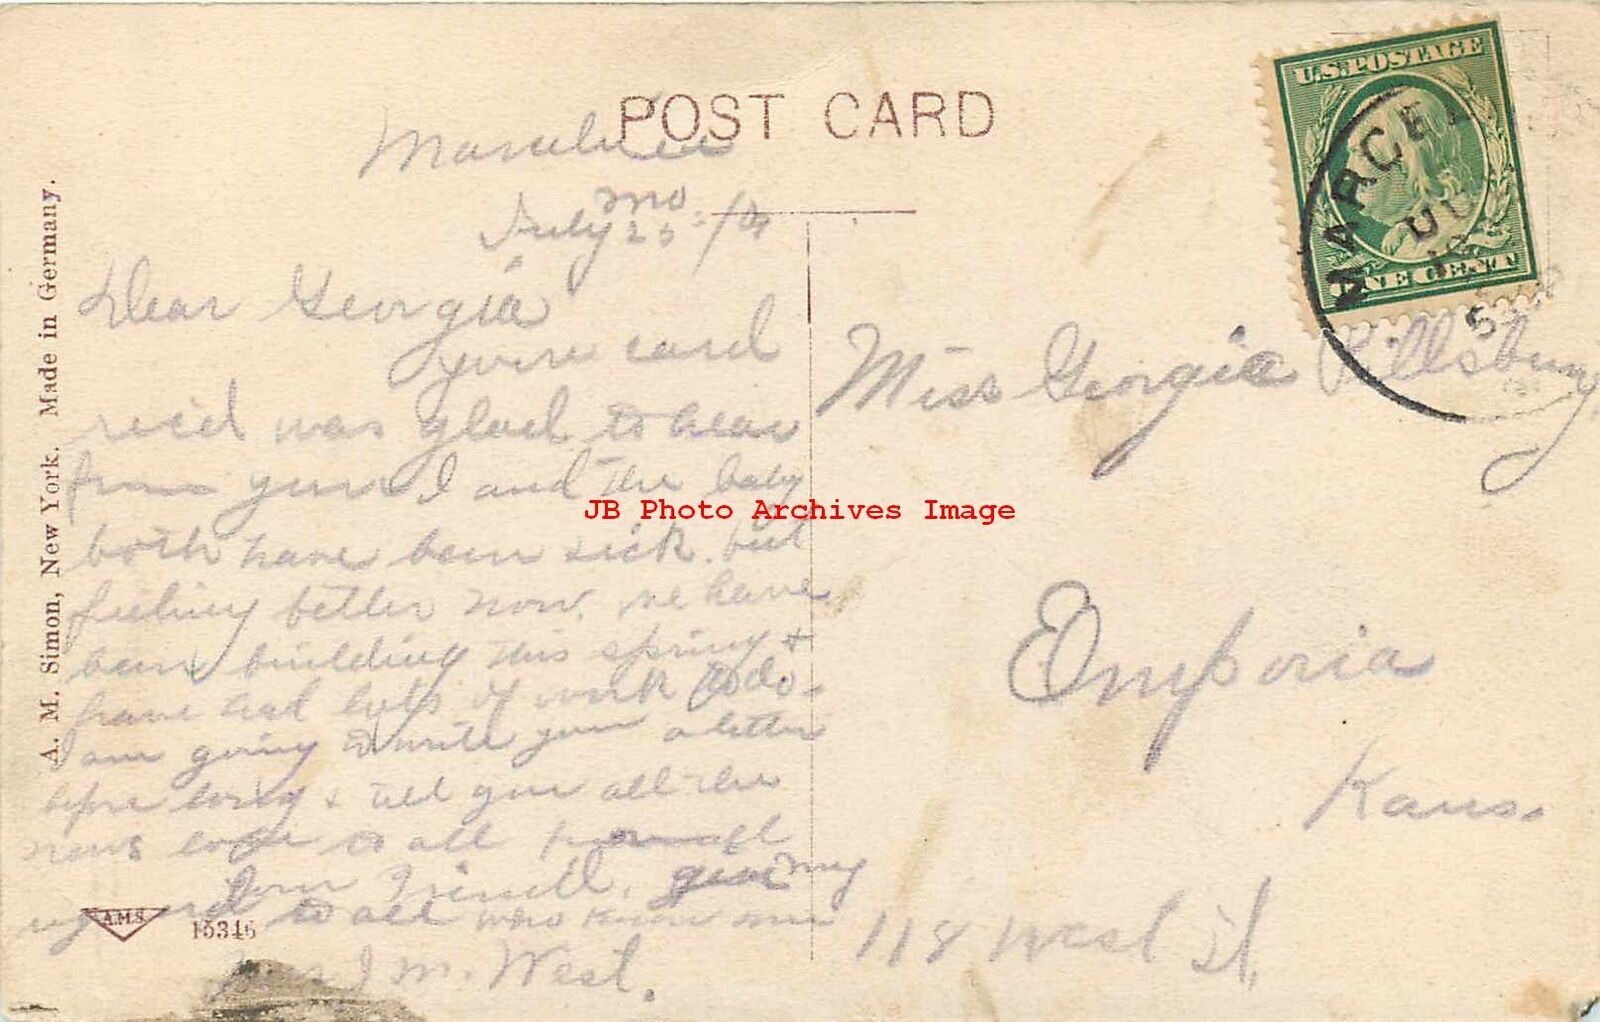 POST CARD
Mo
July 25
Dear Georgia
your card
rec'd was glad to hear
from you. I and the baby
both have been sick. but
feeling better now. we have
been building this spring &
have had lots of work to do.
I am going to write you a letter
before long & tell you all the
news love to all from
your Friend, give my
to all who know me
J M. West.
Miss Georgia Pillsbury
Emporia
Kans.
118 West St.
U.S. POSTAGE
ONE CENT
MARCEL
A. M. Simon, New York. Made in Germany.
A.M.S.
15346
JB Photo Archives Image